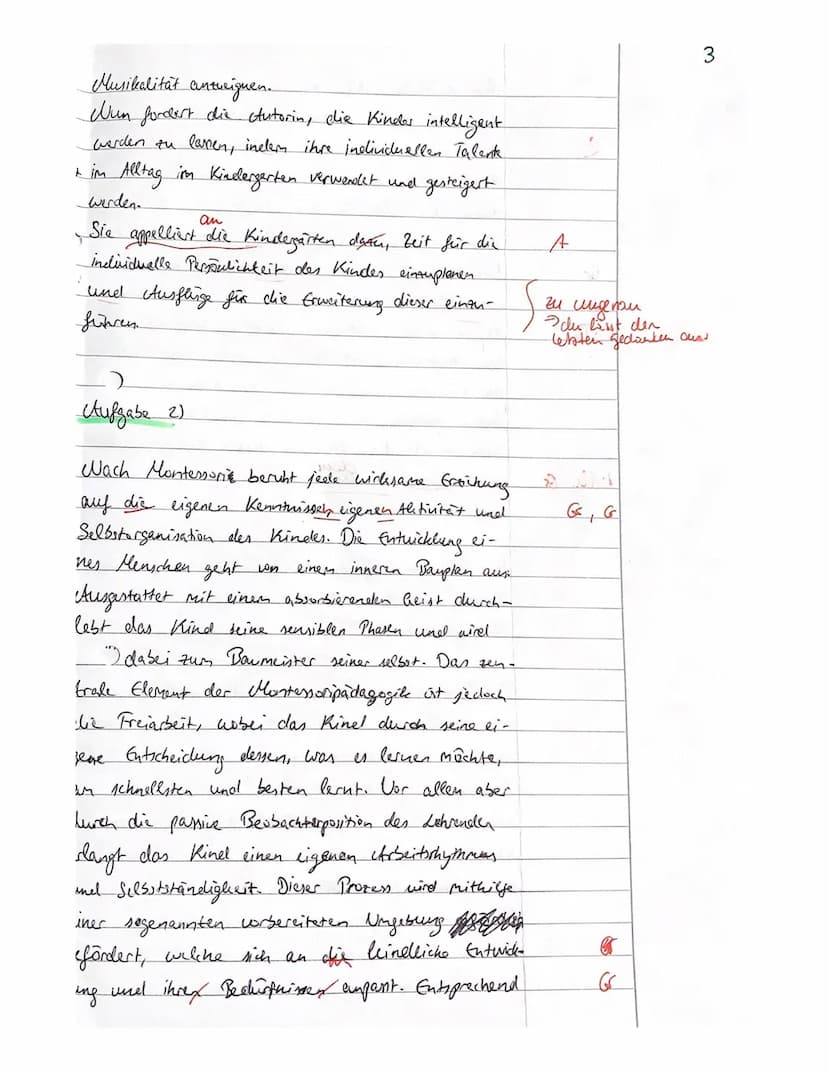 3
Musikalität anzueignen.
Nun fordert die Autorin, die Kinder intelligent
werden zu lassen, indem ihre individuellen Talente
im Alltag im Kindergarten verwendet und gesteigert
werden.
an
Sie appelliert die Kindergärten dazu, Zeit für die
A
individuelle Persönlichkeit des Kindes einzuplanen
und Ausflüge für die Erweiterung dieser einzu-
führen.
zu ungenau
→ du lässt den
letzten Gedanken aus
Aufgabe 2)
Nach Montessori beruht jede wirksame Erziehung
auf die eigenen Kenntnissen, eigenen Aktivität und
Gr, G
Selbstorganisation des Kindes. Die Entwicklung ei-
nes Menschen geht von einem inneren Bauplan aus.
Ausgestattet mit einem absorbierenden Geist durch-
lebt das Kind seine sensiblen Phasen und wird
") dabei zum Baumeister seiner selbst. Das zen-
trale Element der Montessoripädagogik ist jedoch
die Freiarbeit, wobei das Kind durch seine ei-
gene Entscheidung dessen, was es lernen möchte,
am schnellsten und besten lernt. Vor allem aber
durch die passive Beobachterposition des Lehrenden
rlangt das Kind einen eigenen Arbeitsrhythmus
und Selbstständigkeit. Dieser Prozess wird mithilfe
iner sogenannten vorbereiteten Umgebung
efördert, welche sich an die kindliche Entwick-
ung und ihren Bedürfnissen anpasst. Entsprechend
Gr